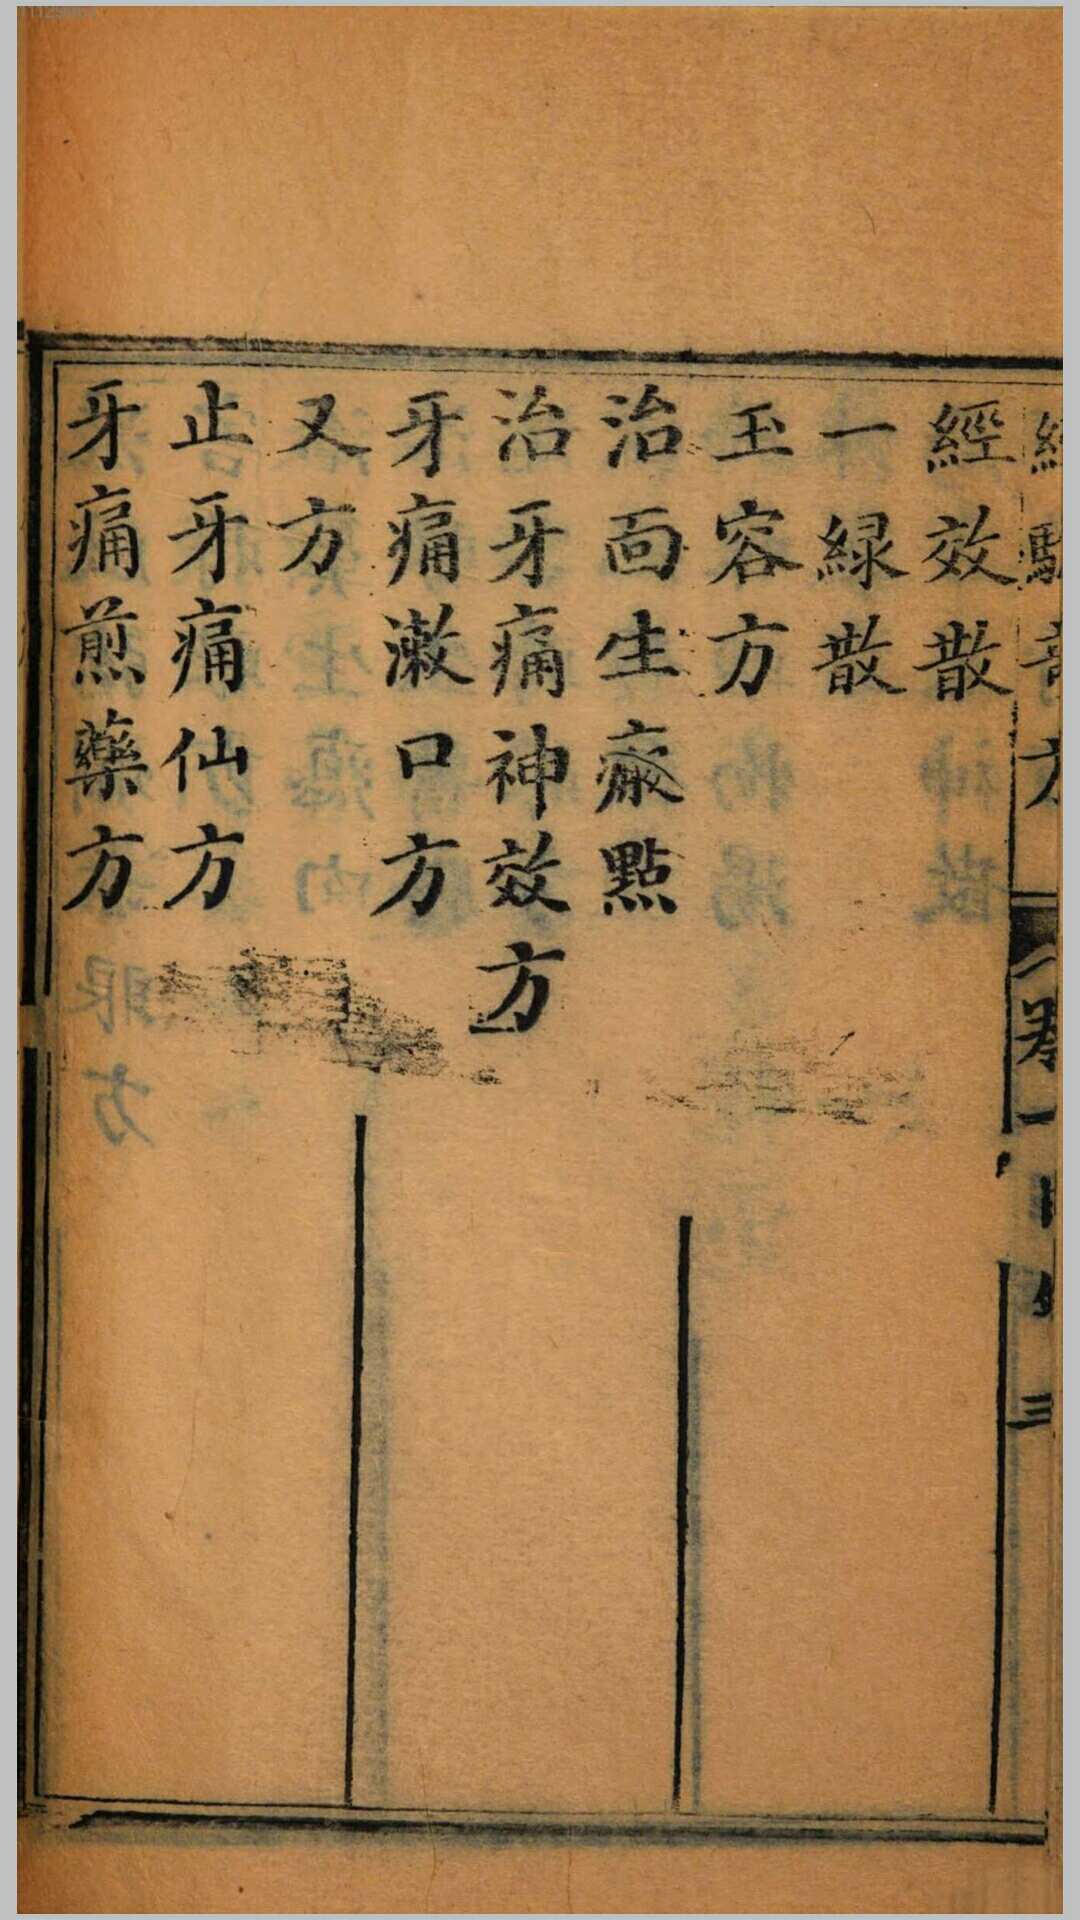 經效散
一綠散
玉容方
治面生瘢點
治牙痛神效方
牙痛漱口方
又方
止牙痛仙方
牙痛煎藥方